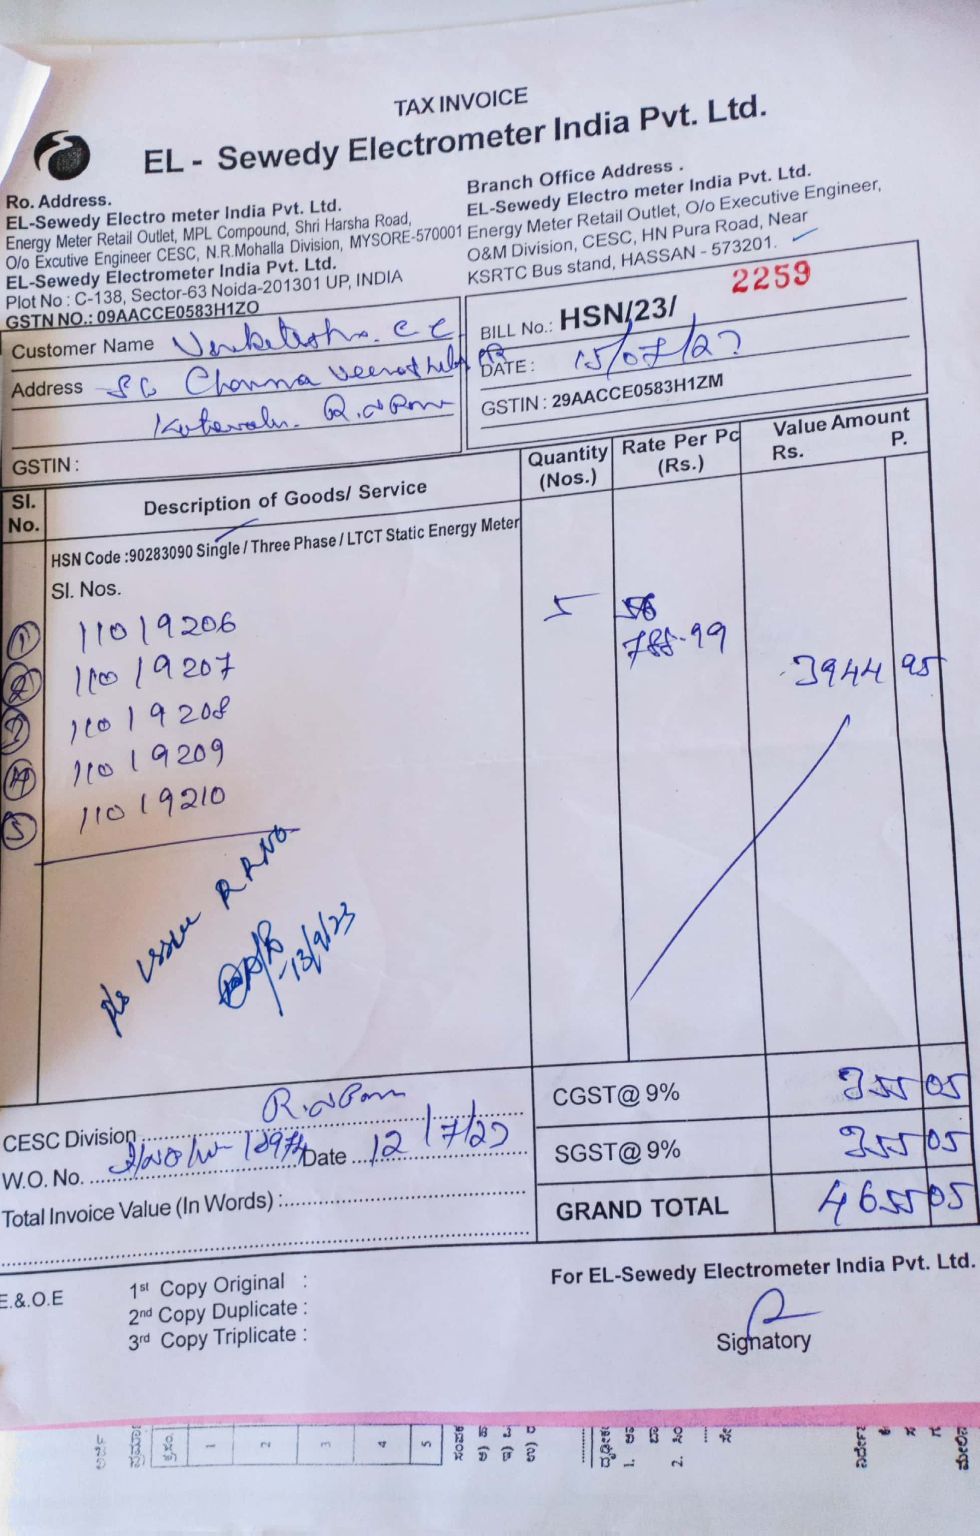 TAX INVOICE
EL - Sewedy Electrometer India Pvt. Ltd.
Ro. Address.
EL-Sewedy Electro meter India Pvt. Ltd.
Energy Meter Retail Outlet, MPL Compound, Shri Harsha Road,
O/o Excutive Engineer CESC, N.R.Mohalla Division, MYSORE-570001
EL-Sewedy Electrometer India Pvt. Ltd.
Plot No : C-138, Sector-63 Noida-201301 UP, INDIA
GSTN NO.: 09AACCE0583H1ZO
Branch Office Address .
EL-Sewedy Electro meter India Pvt. Ltd.
Energy Meter Retail Outlet, O/o Executive Engineer,
O&M Division, CESC, HN Pura Road, Near
KSRTC Bus stand, HASSAN - 573201.
Customer Name
Address
GSTIN :
BILL No.: HSN/23/ 2259
DATE : 15/07/23
GSTIN : 29AACCE0583H1ZM
Sl. No.
Description of Goods/ Service
Quantity (Nos.)
Rate Per Pc (Rs.)
Value Amount
Rs. P.
HSN Code :90283090 Single / Three Phase / LTCT Static Energy Meter
Sl. Nos.
1 11019206 5 788-99
2 11019207 3944 95
3 11019208
4 11019209
5 11019210
RRNO
13/9/23
CGST@ 9% 355 05
SGST@ 9% 355 05
GRAND TOTAL 4655 05
CESC Division
W.O. No. Date 12/7/23
Total Invoice Value (In Words) :
E.&.O.E
1st Copy Original :
2nd Copy Duplicate :
3rd Copy Triplicate :
For EL-Sewedy Electrometer India Pvt. Ltd.
Signatory